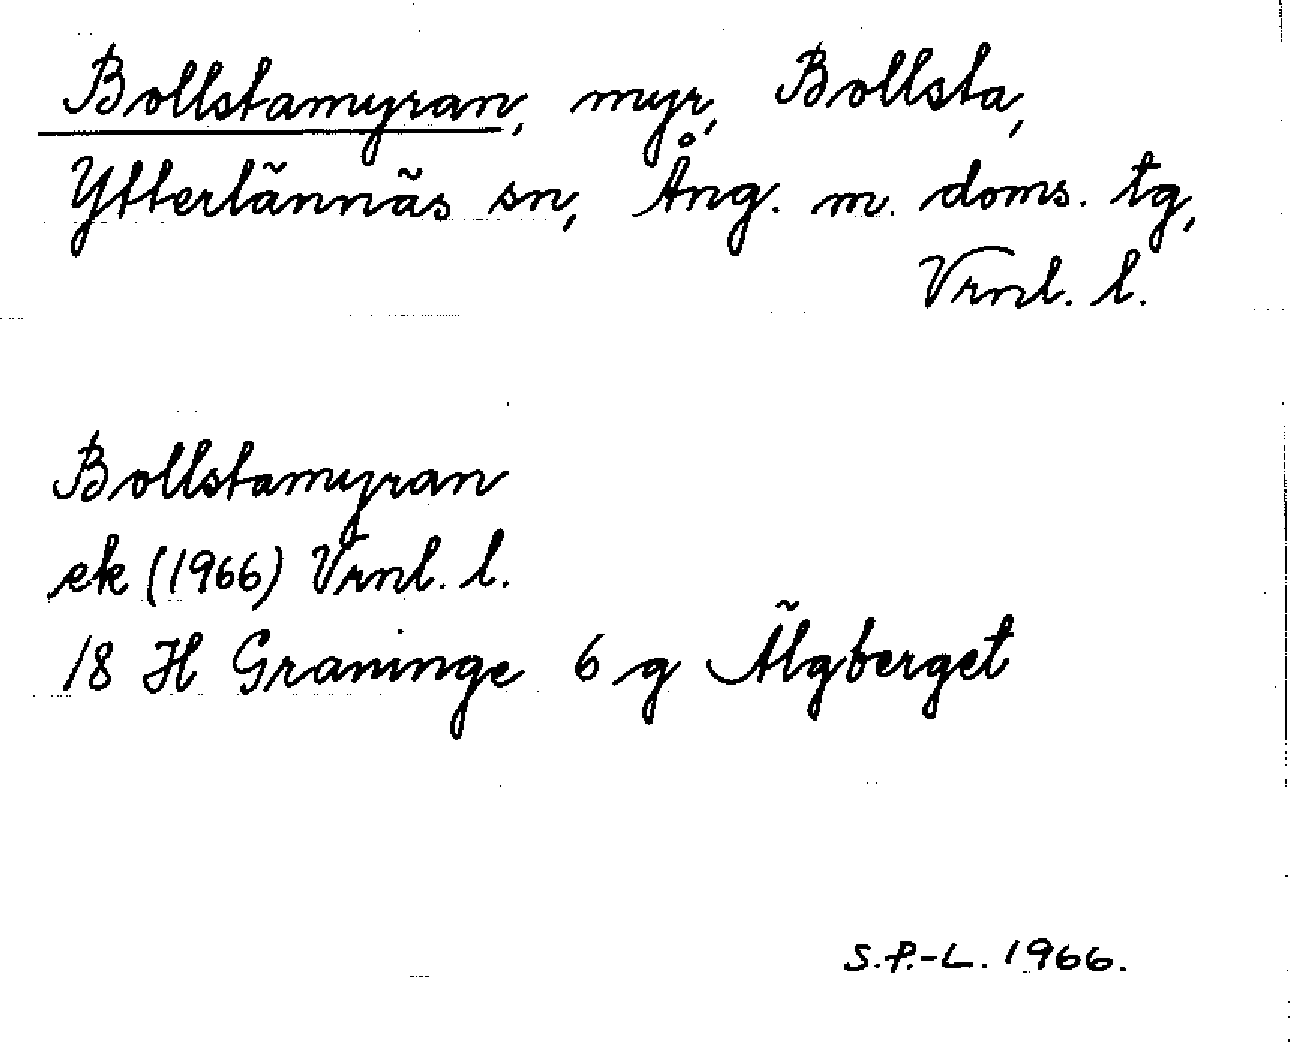 Bollstamyran, myr, Bollsta,
Ytterlännäs sn, Ång. m. doms. tg,
Vrnl. l.
Bollstamyran
ek (1966) Vrnl. l.
18 H Graninge 6 g Älgberget
S.P.-L. 1966.